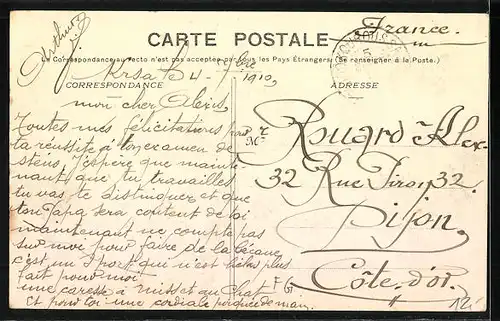 Arthur
France.
CARTE POSTALE
La Correspondance au recto n'est pas acceptée par tous les Pays Étrangers. (Se renseigner à la Poste.)
CORRESPONDANCE
ADRESSE
1910,
mon cher Alexis,
Toutes mes félicitations pour
ta réussite à ton examen de
J'espère que mainte-
nant que tu travailles
tu vas te distinguer et que
ton Papa sera content de toi
maintenant ne compte pas
sur moi pour faire de la bécane
c'est un sport qui n'est plus
fait pour moi
une caresse à et au Chat
et pour toi une cordiale poignée de main.
Mr Rouard Alex-
32 Rue Tivoly 32.
Dijon.
Côte-d'or.
12